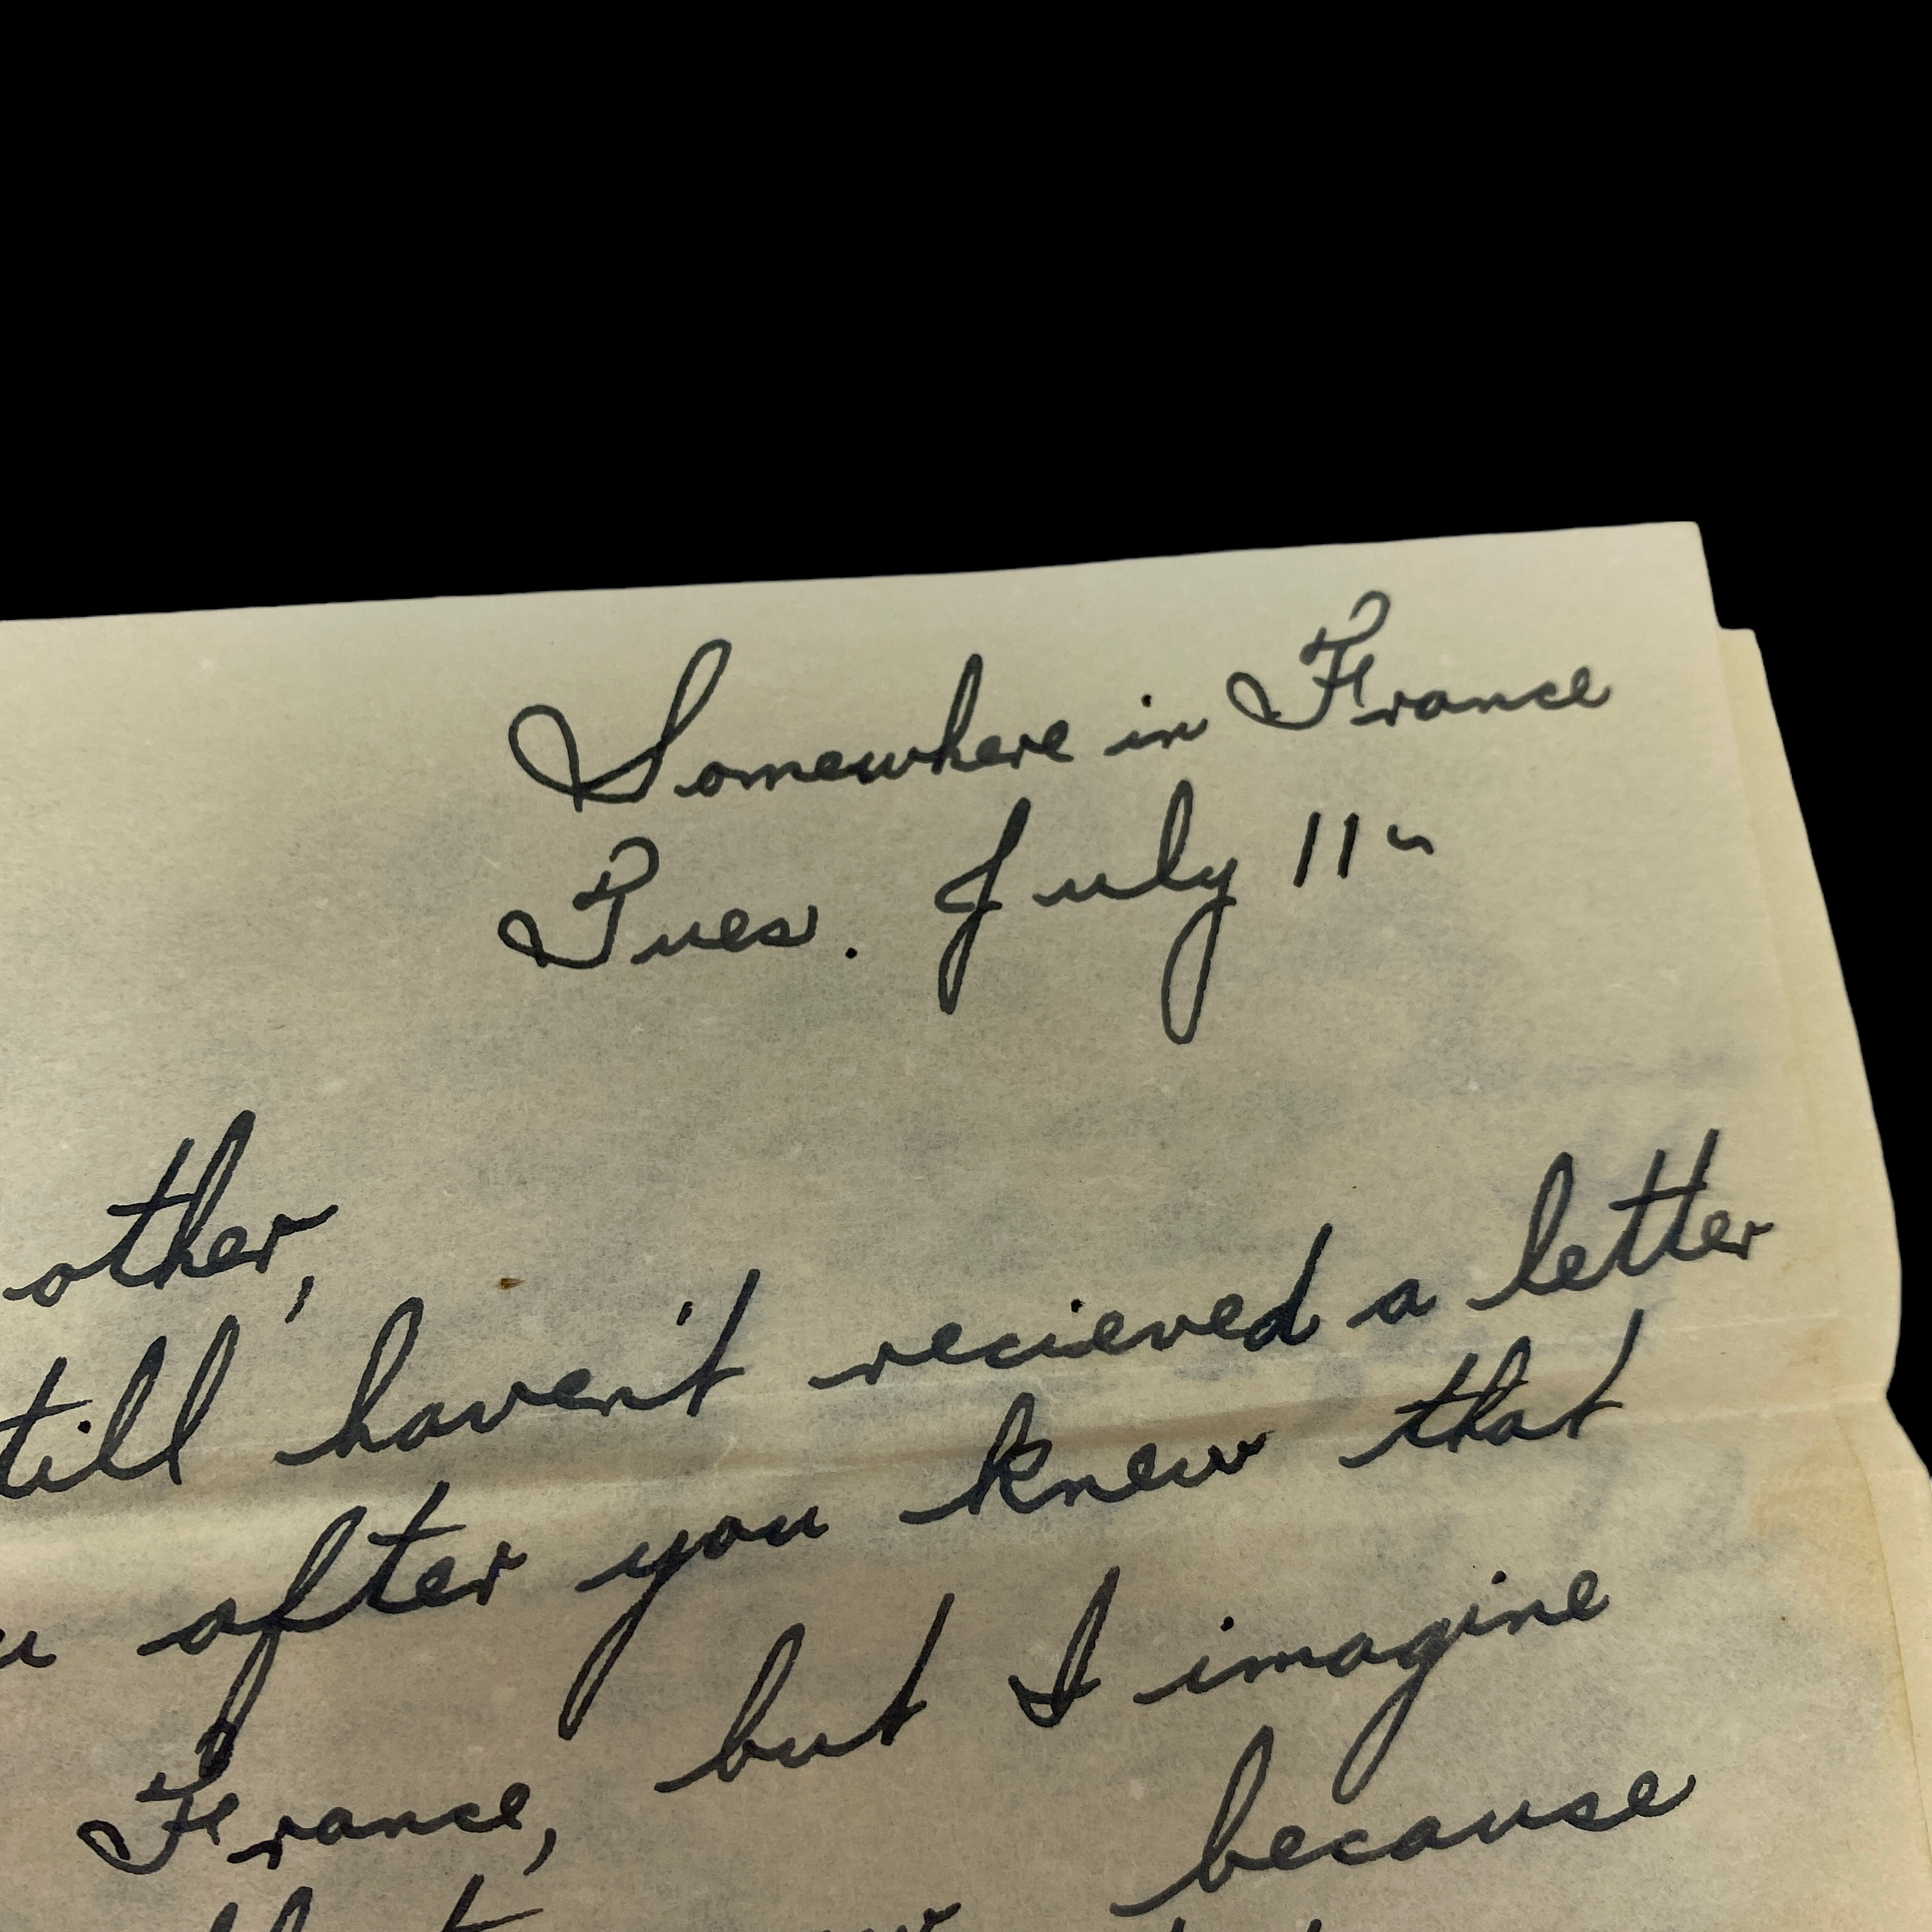 Somewhere in France
Tues. July 11
other,
till haven't recieved a letter
u after you knew that
France, but I imagine
because